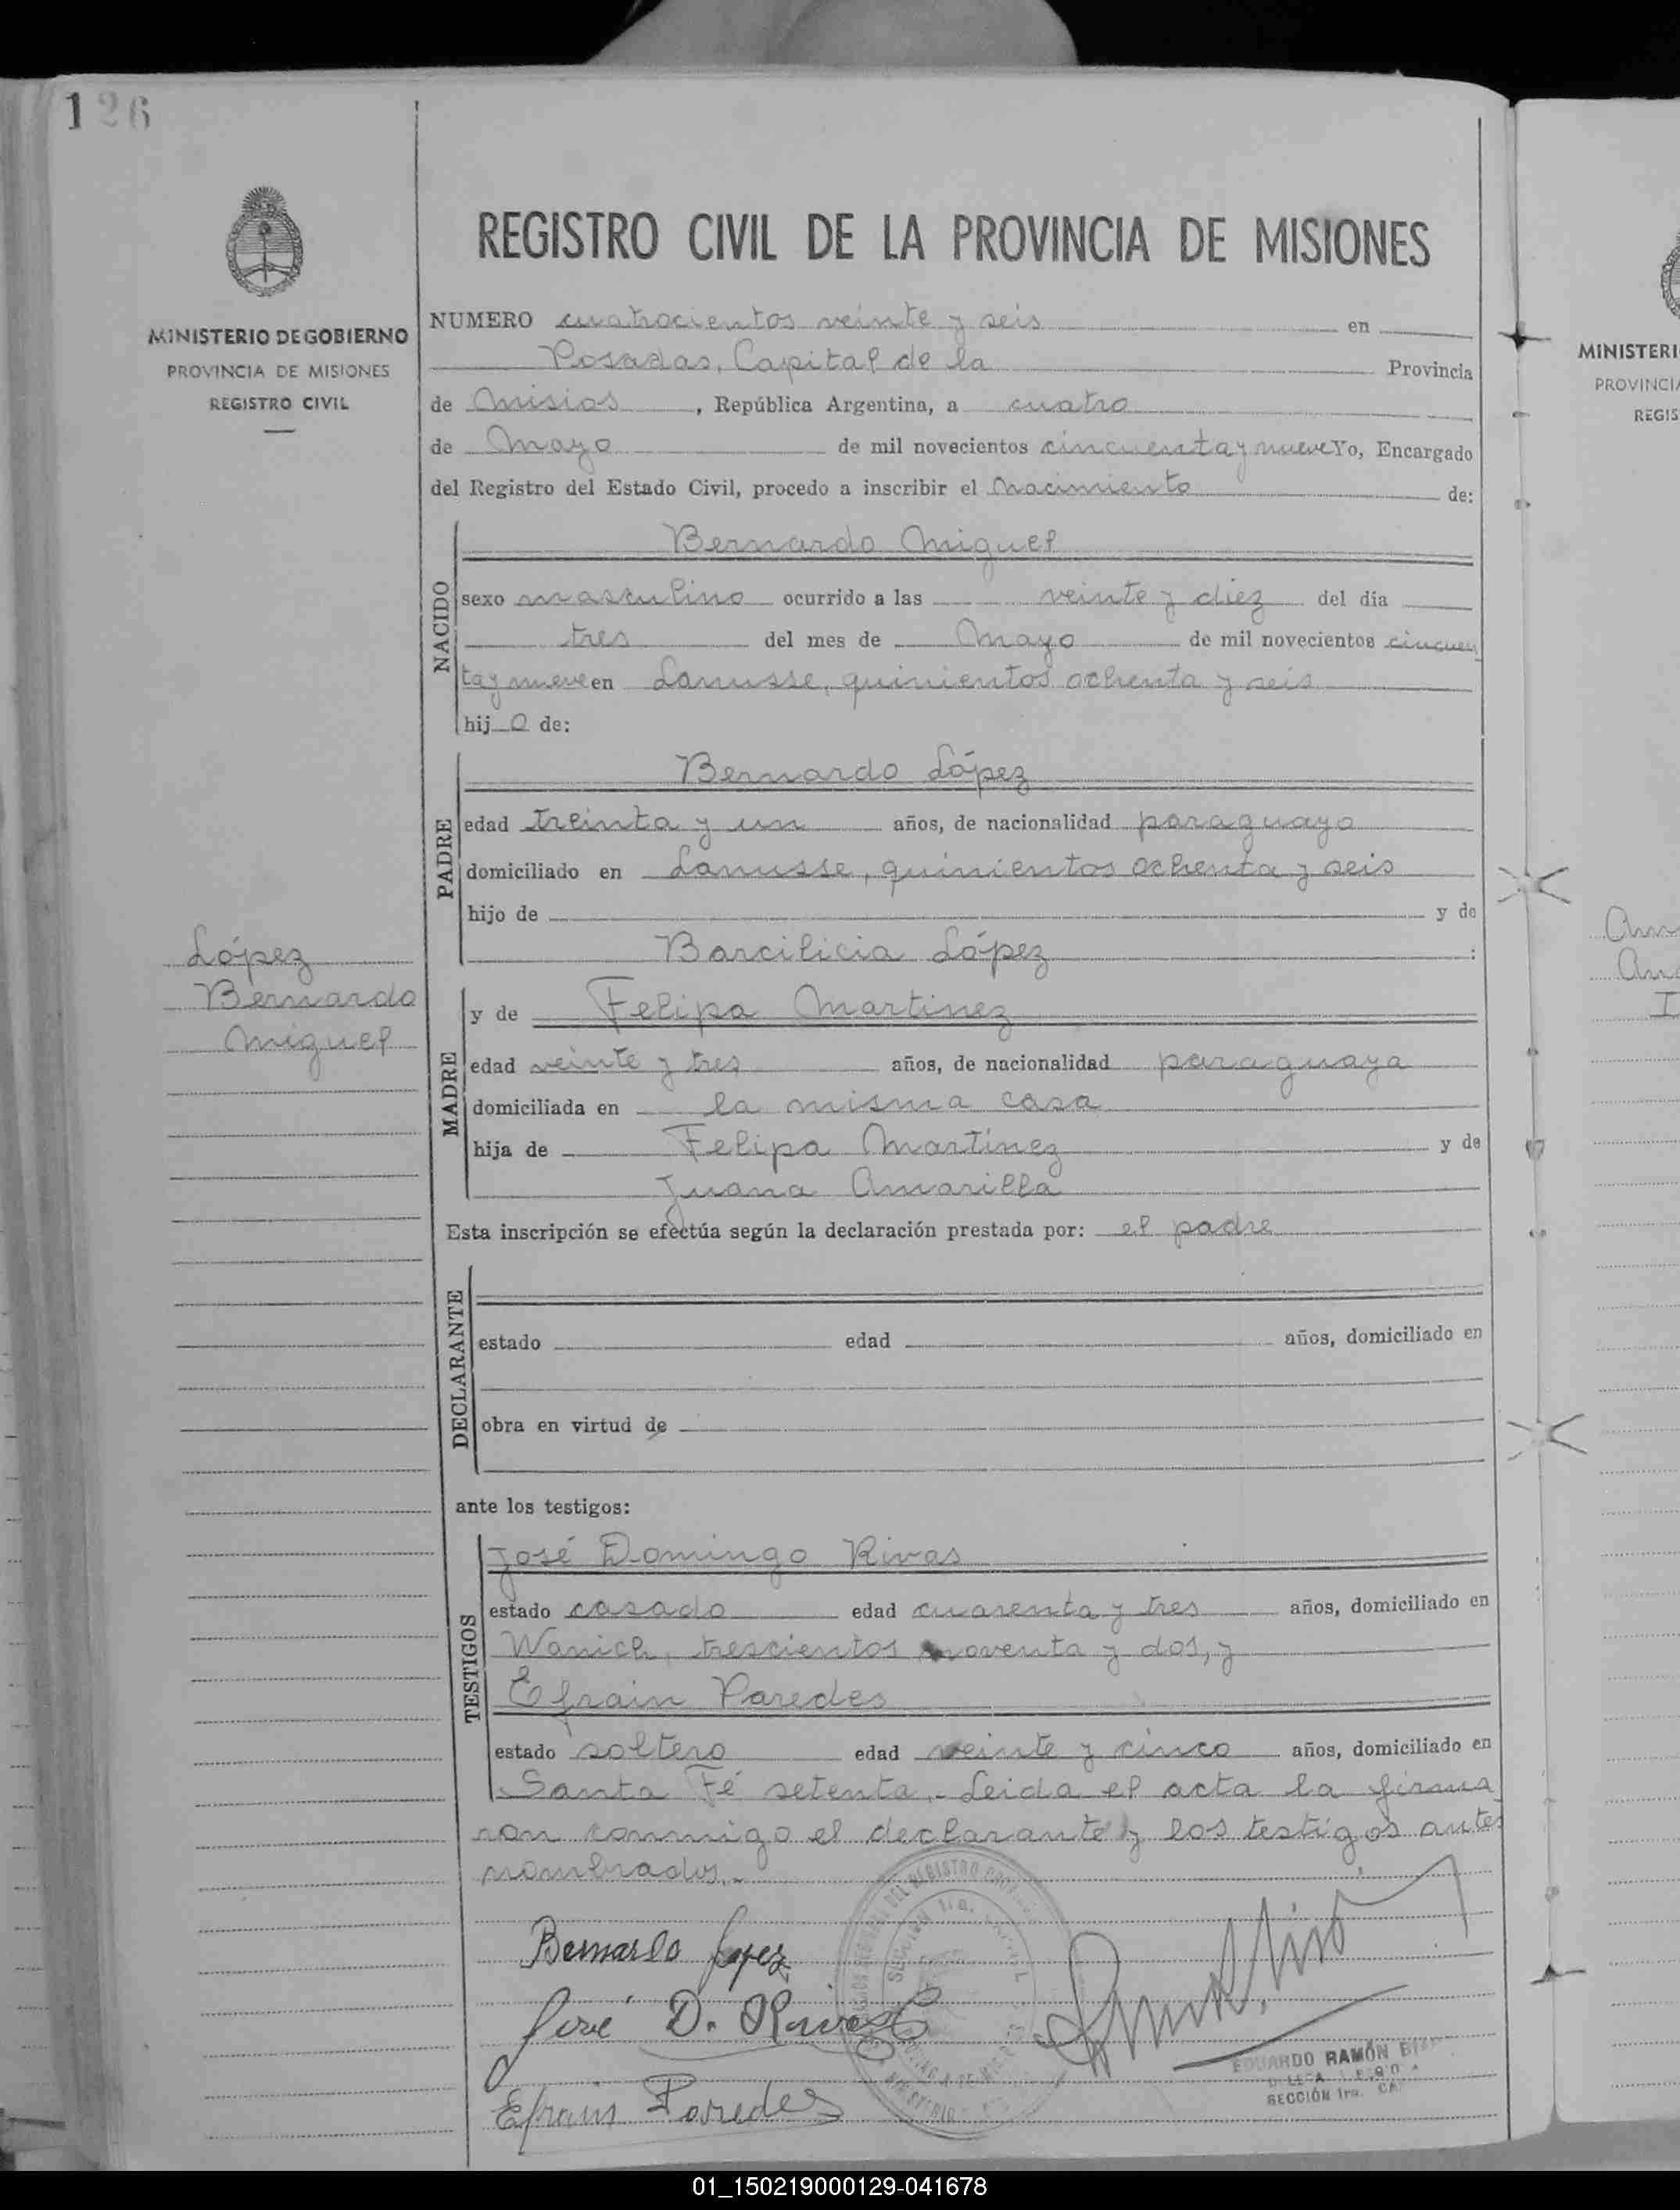 126
MINISTERIO DE GOBIERNO
PROVINCIA DE MISIONES
REGISTRO CIVIL
REGISTRO CIVIL DE LA PROVINCIA DE MISIONES
NUMERO cuatrocientos veinte y seis en
Posadas, Capital de la Provincia
de Misios, República Argentina, a cuatro
de Mayo de mil novecientos cincuenta y nueve Yo, Encargado
del Registro del Estado Civil, procedo a inscribir el Nacimiento de:
NACIDO
Bernardo Miguel
sexo masculino ocurrido a las veinte y diez del día
tres del mes de Mayo de mil novecientos cincuen
ta y nueve en Lanusse, quinientos ochenta y seis
hijo de:
PADRE
Bernardo López
edad treinta y un años, de nacionalidad paraguayo
domiciliado en Lanusse, quinientos ochenta y seis
hijo de y de
Barcilicia López :
López
Bernardo
Miguel
MADRE
y de Felipa Martinez
edad veinte y tres años, de nacionalidad paraguaya
domiciliada en la misma casa
hija de Felipa Martínez y de
Juana Amarilla
Esta inscripción se efectúa según la declaración prestada por: el padre
DECLARANTE
estado edad años, domiciliado en
obra en virtud de
ante los testigos:
TESTIGOS
José Domingo Rivas
estado casado edad cuarenta y tres años, domiciliado en
Wanich, trescientos noventa y dos, y
Efrain Paredes
estado soltero edad veinte y cinco años, domiciliado en
Santa Fé setenta.- Leida el acta la firma
ron conmigo el declarante y los testigos antes
nombrados.-
Bernardo Lopez
José D. Rivas
Efrain Paredes
EDUARDO RAMÓN
SECCIÓN 1ra.
MINISTERI
PROVINCIA
REGIS
01_150219000129-041678